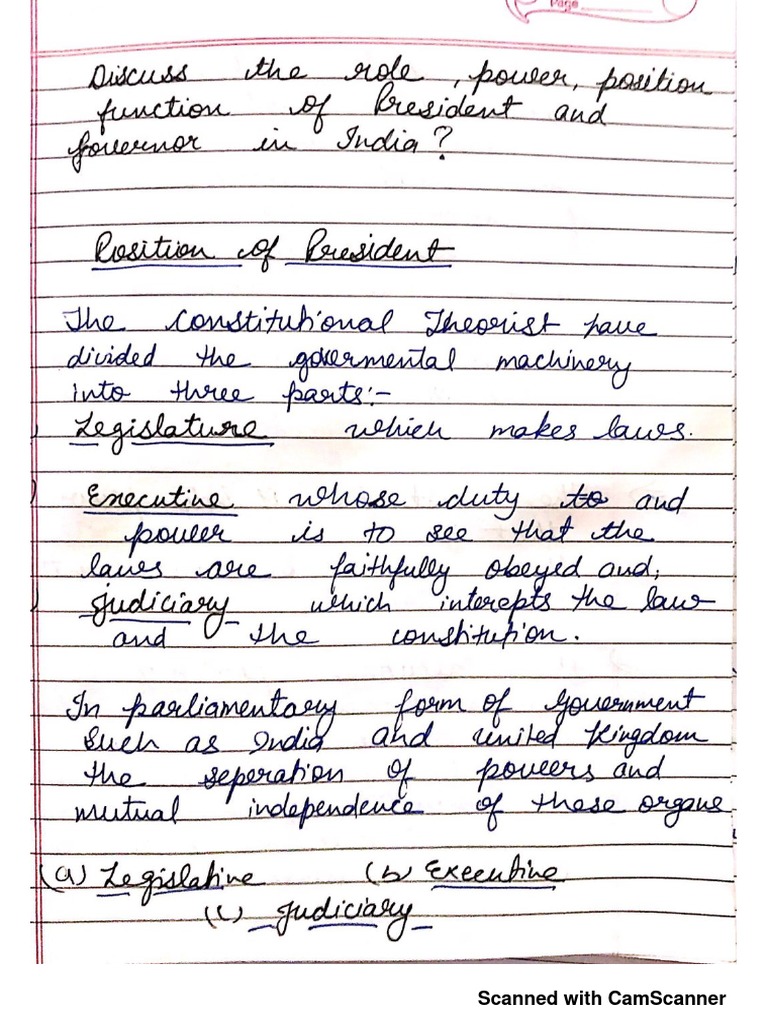 Page
Discuss the role, power, position
function of President and
Governor in India?
Position of President
The constitutional Theorist have
divided the govermental machinery
into three parts:-
Legislature which makes laws.
Executive whose duty to and
power is to see that the
laws are faithfully obeyed and;
Judiciary which interepts the law
and the constitution.
In parliamentary form of Government
such as India and United Kingdom
the seperation of powers and
mutual independence of these organs
(a) Legislative (b) Executive
(c) Judiciary
Scanned with CamScanner